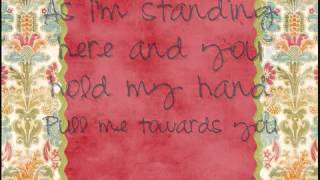 As I'm standing
here and you
hold my hand
Pull me towards you